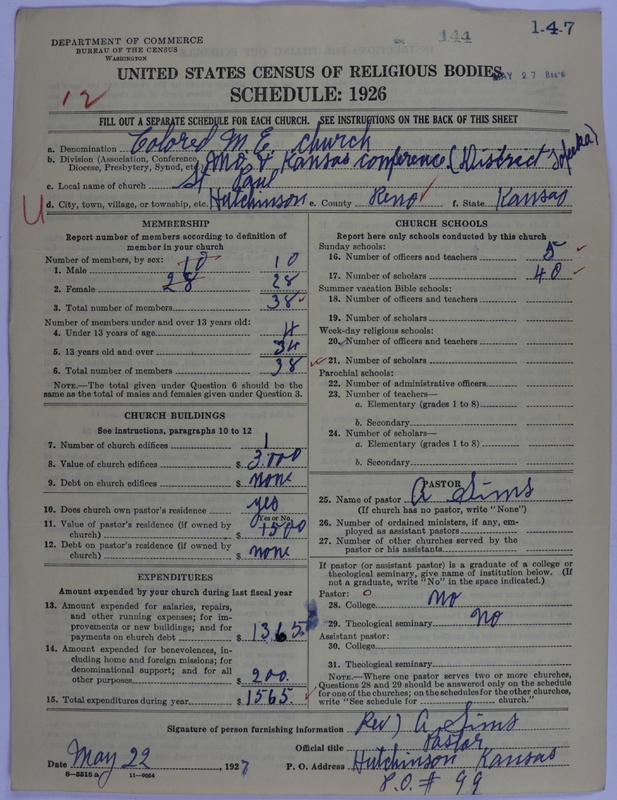 144
1-4-7
DEPARTMENT OF COMMERCE
BUREAU OF THE CENSUS
WASHINGTON
UNITED STATES CENSUS OF RELIGIOUS BODIES
MAY 27
12
SCHEDULE: 1926
FILL OUT A SEPARATE SCHEDULE FOR EACH CHURCH. SEE INSTRUCTIONS ON THE BACK OF THIS SHEET
a. Denomination Colored M E church
b. Division (Association, Conference, Diocese, Presbytery, Synod, etc.) Mo & Kansas conference (District Topeka)
c. Local name of church St Paul
d. City, town, village, or township, etc. Hutchinson e. County Reno f. State Kansas
MEMBERSHIP
Report number of members according to definition of
member in your church
Number of members, by sex:
1. Male 10 10
2. Female 28 28
3. Total number of members 38
Number of members under and over 13 years old:
4. Under 13 years of age 4
5. 13 years old and over 34
6. Total number of members 38
NOTE.—The total given under Question 6 should be the
same as the total of males and females given under Question 3.
CHURCH BUILDINGS
See instructions, paragraphs 10 to 12
7. Number of church edifices 1
8. Value of church edifices $ 3.000
9. Debt on church edifices $ none
10. Does church own pastor's residence yes
(Yes or No)
11. Value of pastor's residence (if owned by
church) $ 1500
12. Debt on pastor's residence (if owned by
church) $ none
EXPENDITURES
Amount expended by your church during last fiscal year
13. Amount expended for salaries, repairs,
and other running expenses; for im-
provements or new buildings; and for
payments on church debt $ 1365.
14. Amount expended for benevolences, in-
cluding home and foreign missions; for
denominational support; and for all
other purposes $ 200.
15. Total expenditures during year $ 1565.
CHURCH SCHOOLS
Report here only schools conducted by this church
Sunday schools:
16. Number of officers and teachers 5
17. Number of scholars 40
Summer vacation Bible schools:
18. Number of officers and teachers
19. Number of scholars
Week-day religious schools:
20. Number of officers and teachers
21. Number of scholars
Parochial schools:
22. Number of administrative officers
23. Number of teachers—
a. Elementary (grades 1 to 8)
b. Secondary
24. Number of scholars—
a. Elementary (grades 1 to 8)
b. Secondary
PASTOR
25. Name of pastor A Sims
(If church has no pastor, write "None")
26. Number of ordained ministers, if any, em-
ployed as assistant pastors
27. Number of other churches served by the
pastor or his assistants
If pastor (or assistant pastor) is a graduate of a college or
theological seminary, give name of institution below. (If
not a graduate, write "No" in the space indicated.)
Pastor:
28. College no
29. Theological seminary no
Assistant pastor:
30. College
31. Theological seminary
NOTE.—Where one pastor serves two or more churches,
Questions 28 and 29 should be answered only on the schedule
for one of the churches; on the schedules for the other churches,
write "See schedule for church."
Signature of person furnishing information Rev) A Sims
Official title Pastor
Date May 22, 1927 P. O. Address Hutchinson Kansas
8-5515a 11-9054
P.O. # 99